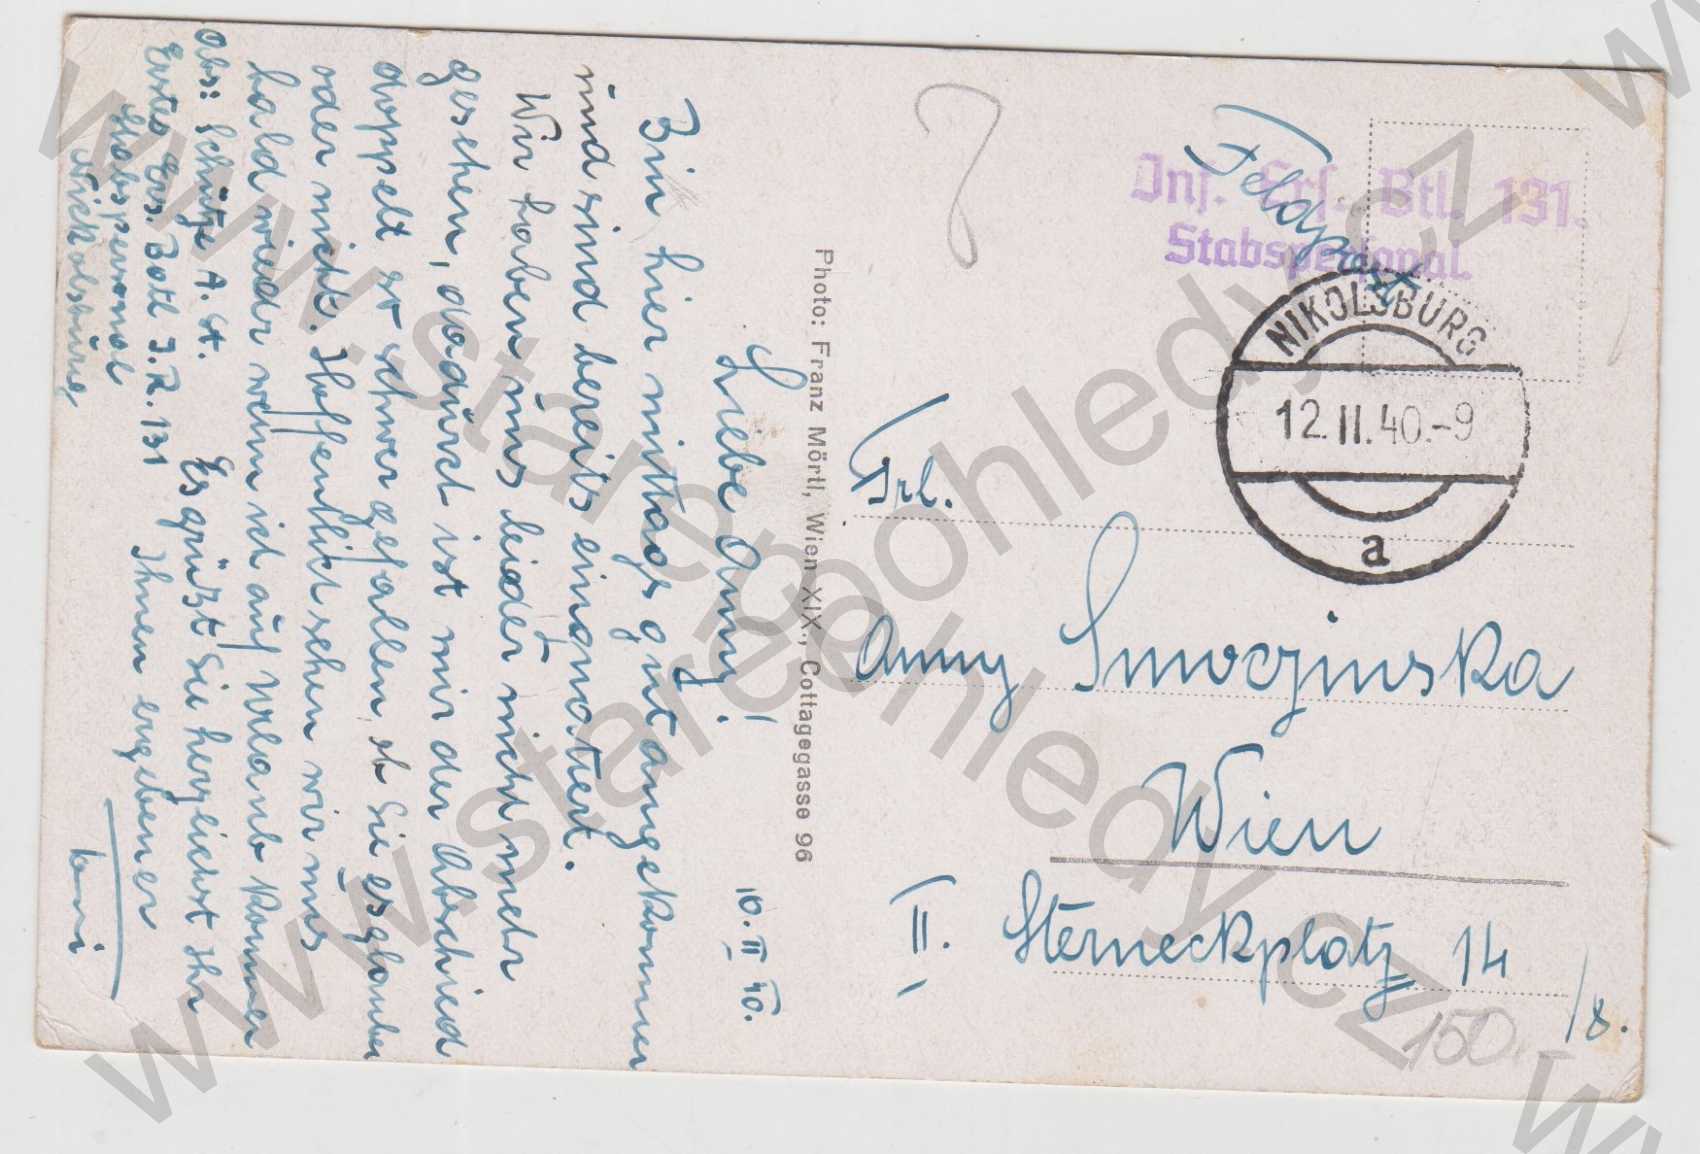 10. II 40.
Liebe Anny!
Bin hier mittags gut angekommen
und sind bereits einquatiert.
Wir haben uns leider nicht mehr
gesehen, dadurch ist mir der Abschied
doppelt so schwer gefallen, ob Sie es glauben
oder nicht. Hoffentlich sehen wir uns
bald wieder wenn ich auf Urlaub komme
Es grüßt Sie herzlichst Ihr
Ihnen ergebener
Toni
Abs: Schütze A. St.
Erstes Ers. Batl J.R. 131
Stabspersonal
Nickolsburg
Photo: Franz Mörtl, Wien XIX., Cottagegasse 96
Feldpost
Inf. Ers. Btl. 131.
Stabspersonal.
NIKOLSBURG
12.II.40.-9
a
Frl.
Anny Smoczinska
Wien
II. Sterneckplatz 14
/8.
150
www.starepohledy.cz
www.starepohledy.cz